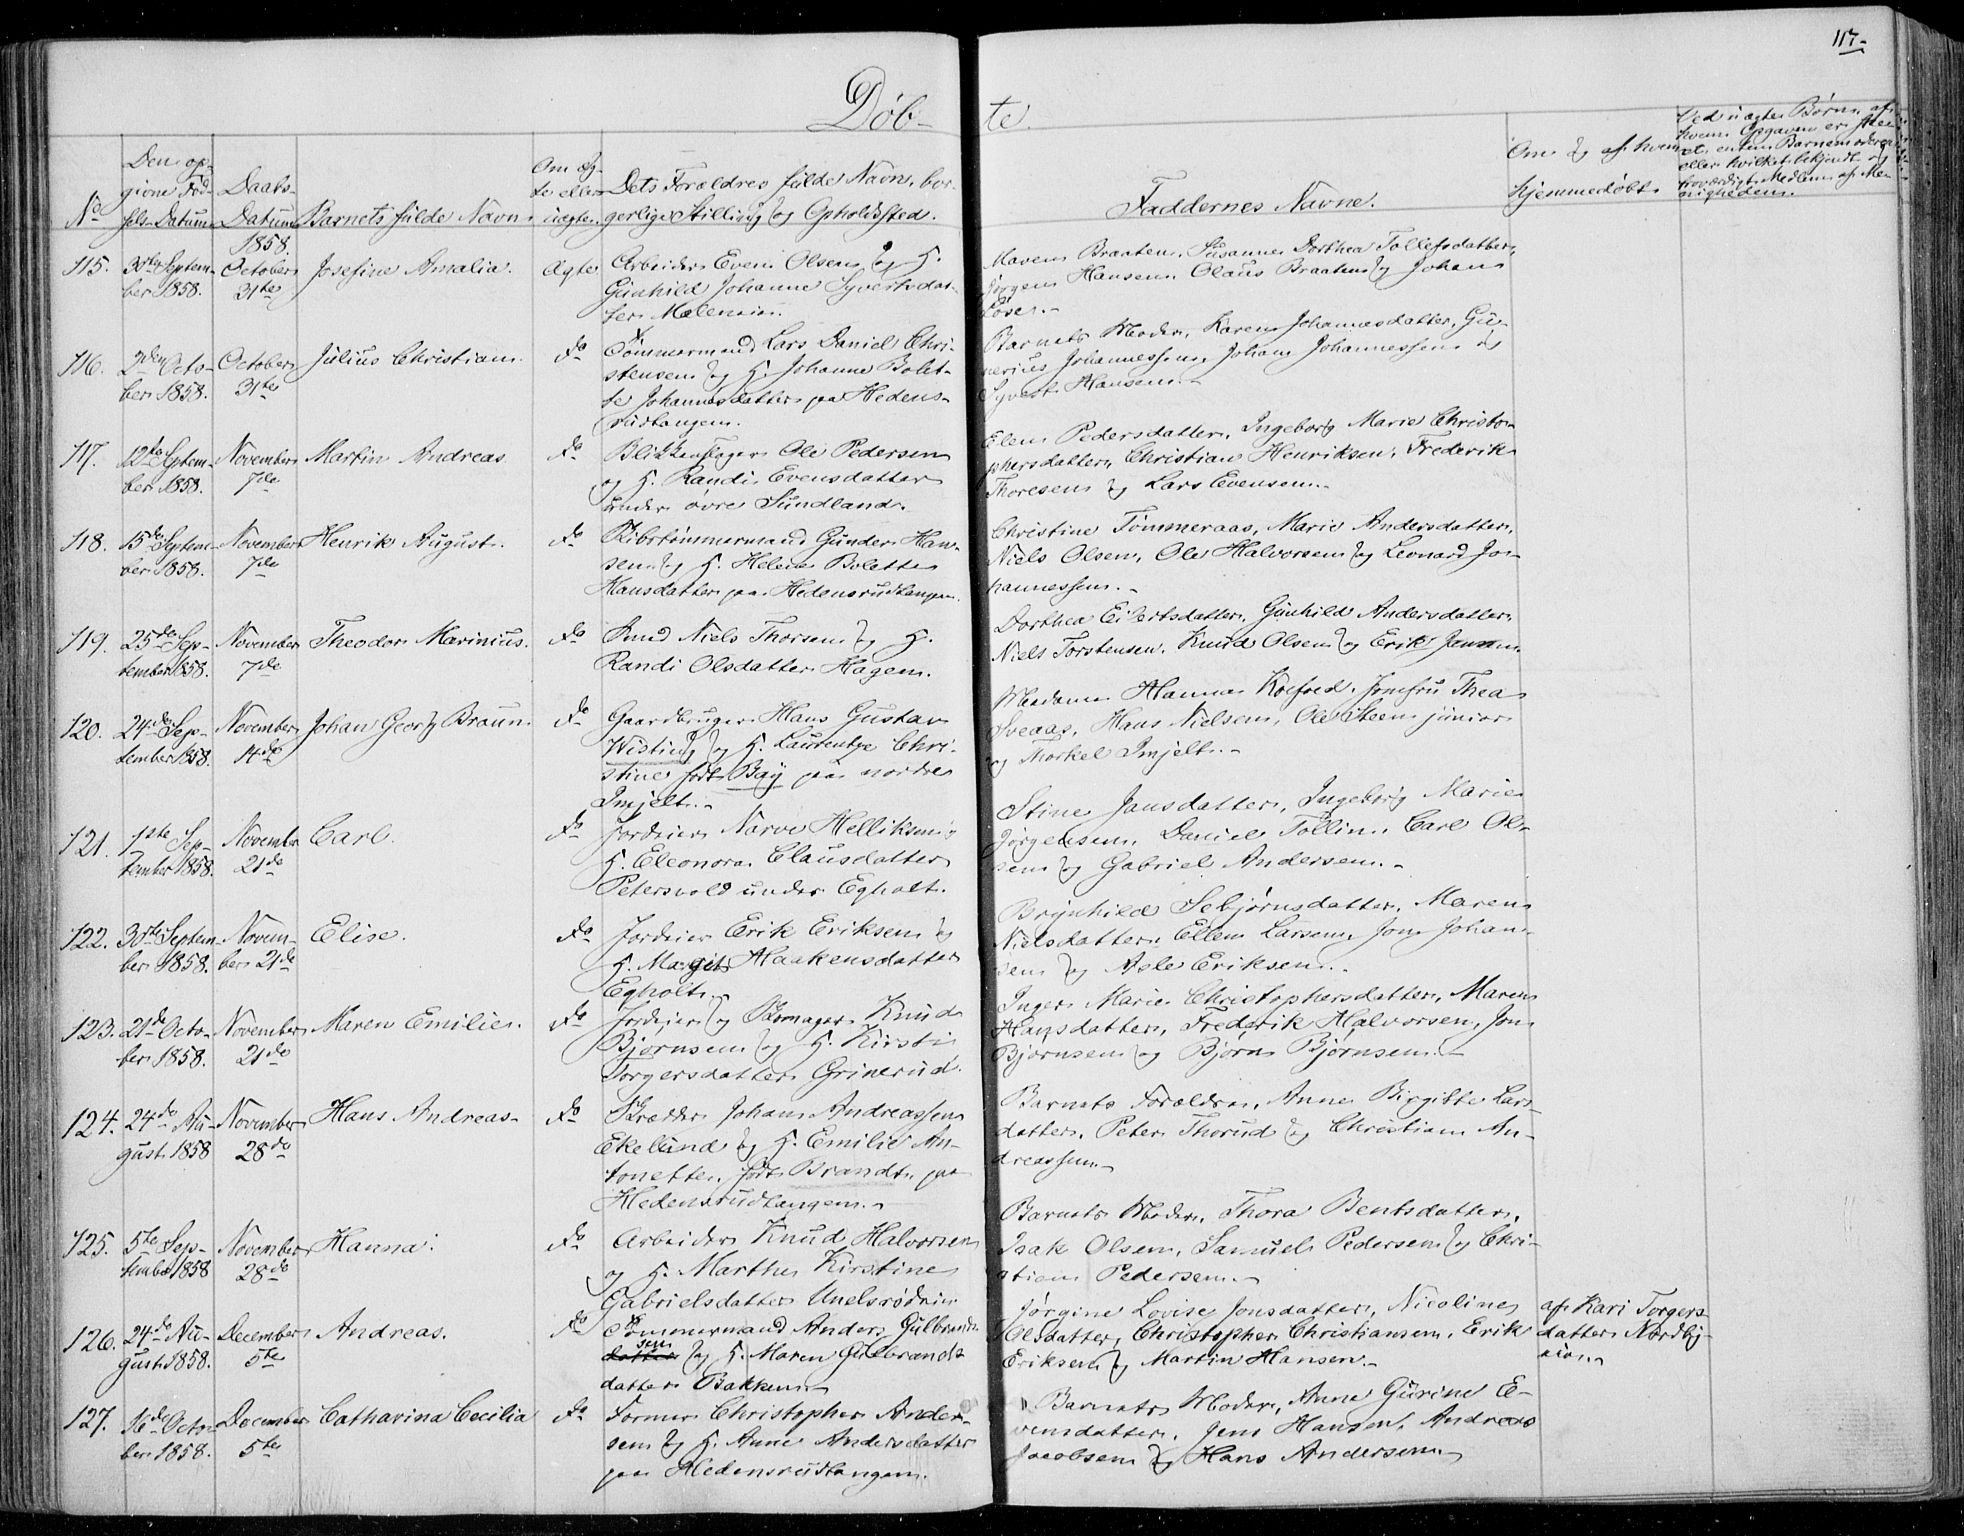 117.
Døb-
te.
No
Den op-
givne Fød-
sels-Datum
Daabs-
Datum
1858.
Barnets fulde Navn.
Om æg-
te eller
uægte.
Dets Forældres fulde Navn, bor-
gerlige Stilling og Opholdssted.
Faddernes Navne.
Om og af hvem
hjemmedøbt
Ved uægte Børn, af
hvem Opgaven er skee
et, enten Barnemoderen
eller hvilket bekjendt og
troværdigt Medlem af Me-
nigheden.
115.
30te Septem-
ber 1858.
October
31te
Josefine Amalia.
Ægte
Arbeider Even Olsen og H.
Gunhild Johanne Syvertsdat-
ter
Maren Braaten, Susanne Dorthea Tollefsdatter,
Jørgen Hansen, Olaus Braaten og Johan
116.
2den Octo-
ber 1858.
October
31te
Julius Christian.
Do
Tømmermand Lars Daniel Chri-
stensen og H. Johanne Bolet-
te Johannesdatter paa Hedens-
rudtangen.
Barnets Moder, Karen Johannesdatter, Gu-
nerius Johannessen, Johan Johannessen og
Syvert Hansen.-
117.
12te Septem-
ber 1858.
November
7de
Martin Andreas
Do
Blikkenslager Ole Pedersen
og H. Randi Evensdatter
under øvre Sundland.
Elen Pedersdatter, Ingeborg Marie Christo-
phersdatter, Christian Henriksen, Frederik
Thoresen og Lars Evensen.-
118.
15de Septem-
ber 1858.
November
7de
Henrik August.
Do
Ribstømmermand Gunder Han-
sen og H. Helene Bolette
Hansdatter paa Hedensrudtangen.
Christine Tømmeraas, Marie Andersdatter,
Niels Olsen, Ole Halvorsen og Leonard Jo-
hannessen.-
119.
25de Sep-
tember 1858.
November
7de
Theodor Marinius.
Do
Smed Niels Thorsen og H.
Randi Olsdatter Hagen.
Dorthea Eilertsdatter, Gunhild Andersdatter,
Niels Torstensen, Knud Olsen og Erik Jansen.
120.
24de Sep-
tember 1858.
November
14de
Johan Georg Braun.
Do
Gaardbruger Hans Gustav
Wisting og H. Laurentze Chri-
stine født Bay paa nordre
Imjelt.-
Madame Hanna Koefoed, Jomfru Thea
Sveaas, Hans Nielsen, Ole Steen junior
og Thorkel Imjelt.-
121.
1ste Sep-
tember 1858.
November
21de
Carl.
Do
Jordeier Narve Helliksen og
H. Eleonora Clausdatter
Petersvold under Egholt.
Stine Jansdatter, Ingeborg Marie
Jørgensen, Daniel Tollin, Carl Ol-
sen og Gabriel Andersen.-
122.
30te Septem-
ber 1858.
Novem-
ber 21de
Elise.
Do
Jordeier Erik Eriksen og
H. Margit Haakensdatter
Egholt.
Brynhild Sebjørnsdatter, Maren
Nielsdatter, Ellen Larsen, Jon Johan-
sen og Asle Eriksen.-
123.
21de Octo-
ber 1858.
November
21de
Maren Emilie.
Do
Jordeier og Skomager Knud
Bjørnsen og H. Kirsti
Torgersdatter Grinerud.
Inger Marie Christophersdatter, Maren
Hansdatter, Frederik Halvorsen, Jon
Bjørnsen og Bjørn Bjørnsen.-
124.
24de Au-
gust 1858
November
28de
Hans Andreas.
Do
Skrædder Johan Andreassen
Ekelund og H. Emilie An-
tonette, født Brandt, paa
Hedensrudtangen.-
Barnets Forældre, Anne Birgitte Lars-
datter, Peter Thorud og Christian An-
dreassen.-
125.
5te Sep-
tember 1858
November
28de
Hanna.
Do
Arbeider Knud Halvorsen
og H. Marthe Kirstine
Gabrielsdatter
Barnets Moder, Thora Bentsdatter,
Isak Olsen, Samuel Pedersen og Chri-
stian Pedersen.-
126.
24de Au-
gust 1858.
December
5te
Andreas.
Do
Tømmermand Anders Gulbrands
sen
datter og H. Maren Gulbrands
datter Bakken.-
Jørgine Lovise Jonsdatter, Nicoline
Olsdatter, Christopher Christiansen, Erik
Eriksen og Martin Hansen.-
af Kari Torgers
datter Nordbj-
127.
16de Octo-
ber 1858.
December
5te
Catharina Cecilia
Do
Former Christopher Ander-
sen og H. Anne Andersdatter
paa Hedensrudtangen.
Barnets Moder, Anne Gurine E-
vensdatter, Jens Hansen, Andreas
Jacobsen og Hans Andersen.-